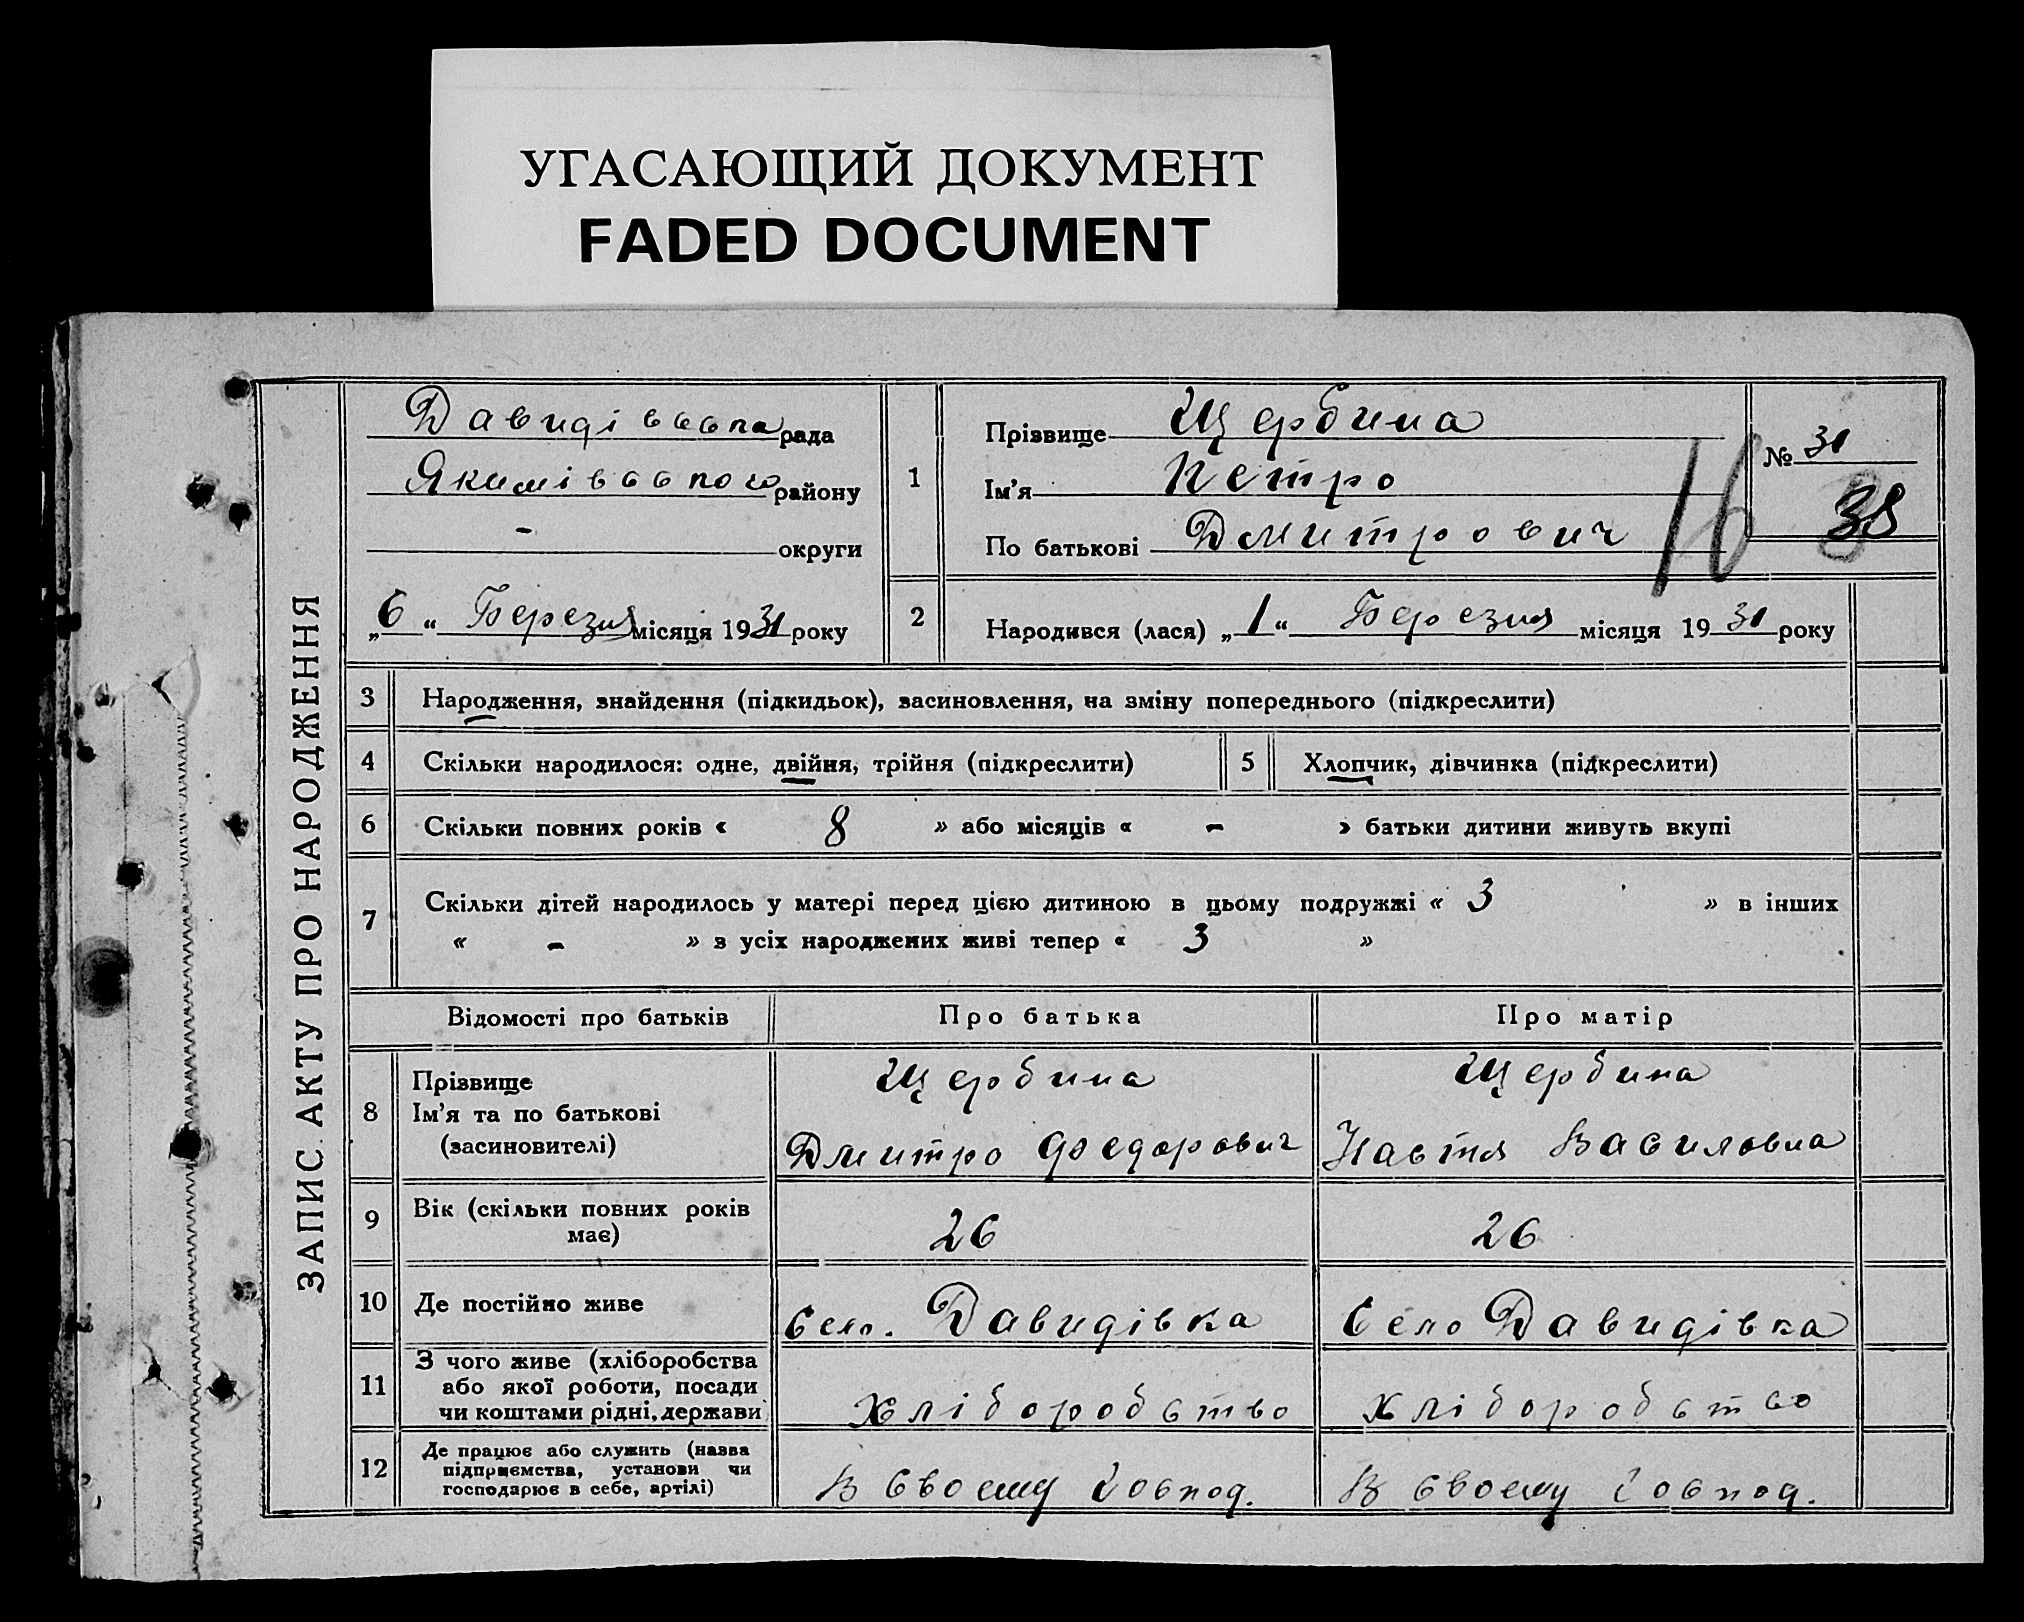 УГАСАЮЩИЙ ДОКУМЕНТ
FADED DOCUMENT
ЗАПИС АКТУ ПРО НАРОДЖЕННЯ
Давидівська рада
Якимівського району
- округи
„6“ Березня місяця 1931 року
1
Прізвище Щербина
Ім'я Петро
По батькові Дмитрович
№ 31
16
38
2
Народився (лася) „1“ Березня місяця 1931 року
3 Народження, знайдення (підкидьок), засиновлення, на зміну попереднього (підкреслити)
4 Скільки народилося: одне, двійня, трійня (підкреслити) 5 Хлопчик, дівчинка (підкреслити)
6 Скільки повних років « 8 » або місяців « - » батьки дитини живуть вкупі
7 Скільки дітей народилось у матері перед цією дитиною в цьому подружжі « 3 » в інших
« - » з усіх народжених живі тепер « 3 »
Відомості про батьків Про батька Про матір
8 Прізвище Щербина Щербина
Ім'я та по батькові
(засиновителі) Дмитро Федорович Настя Василовна
9 Вік (скільки повних років
має) 26 26
10 Де постійно живе Село. Давидівка Село Давидівка
11 З чого живе (хліборобства
або якої роботи, посади
чи коштами рідні, держави хліборобство хліборобство
12 Де працює або служить (назва
підприємства, установи чи
господарює в себе, артілі) В своему господ. В своему господ.